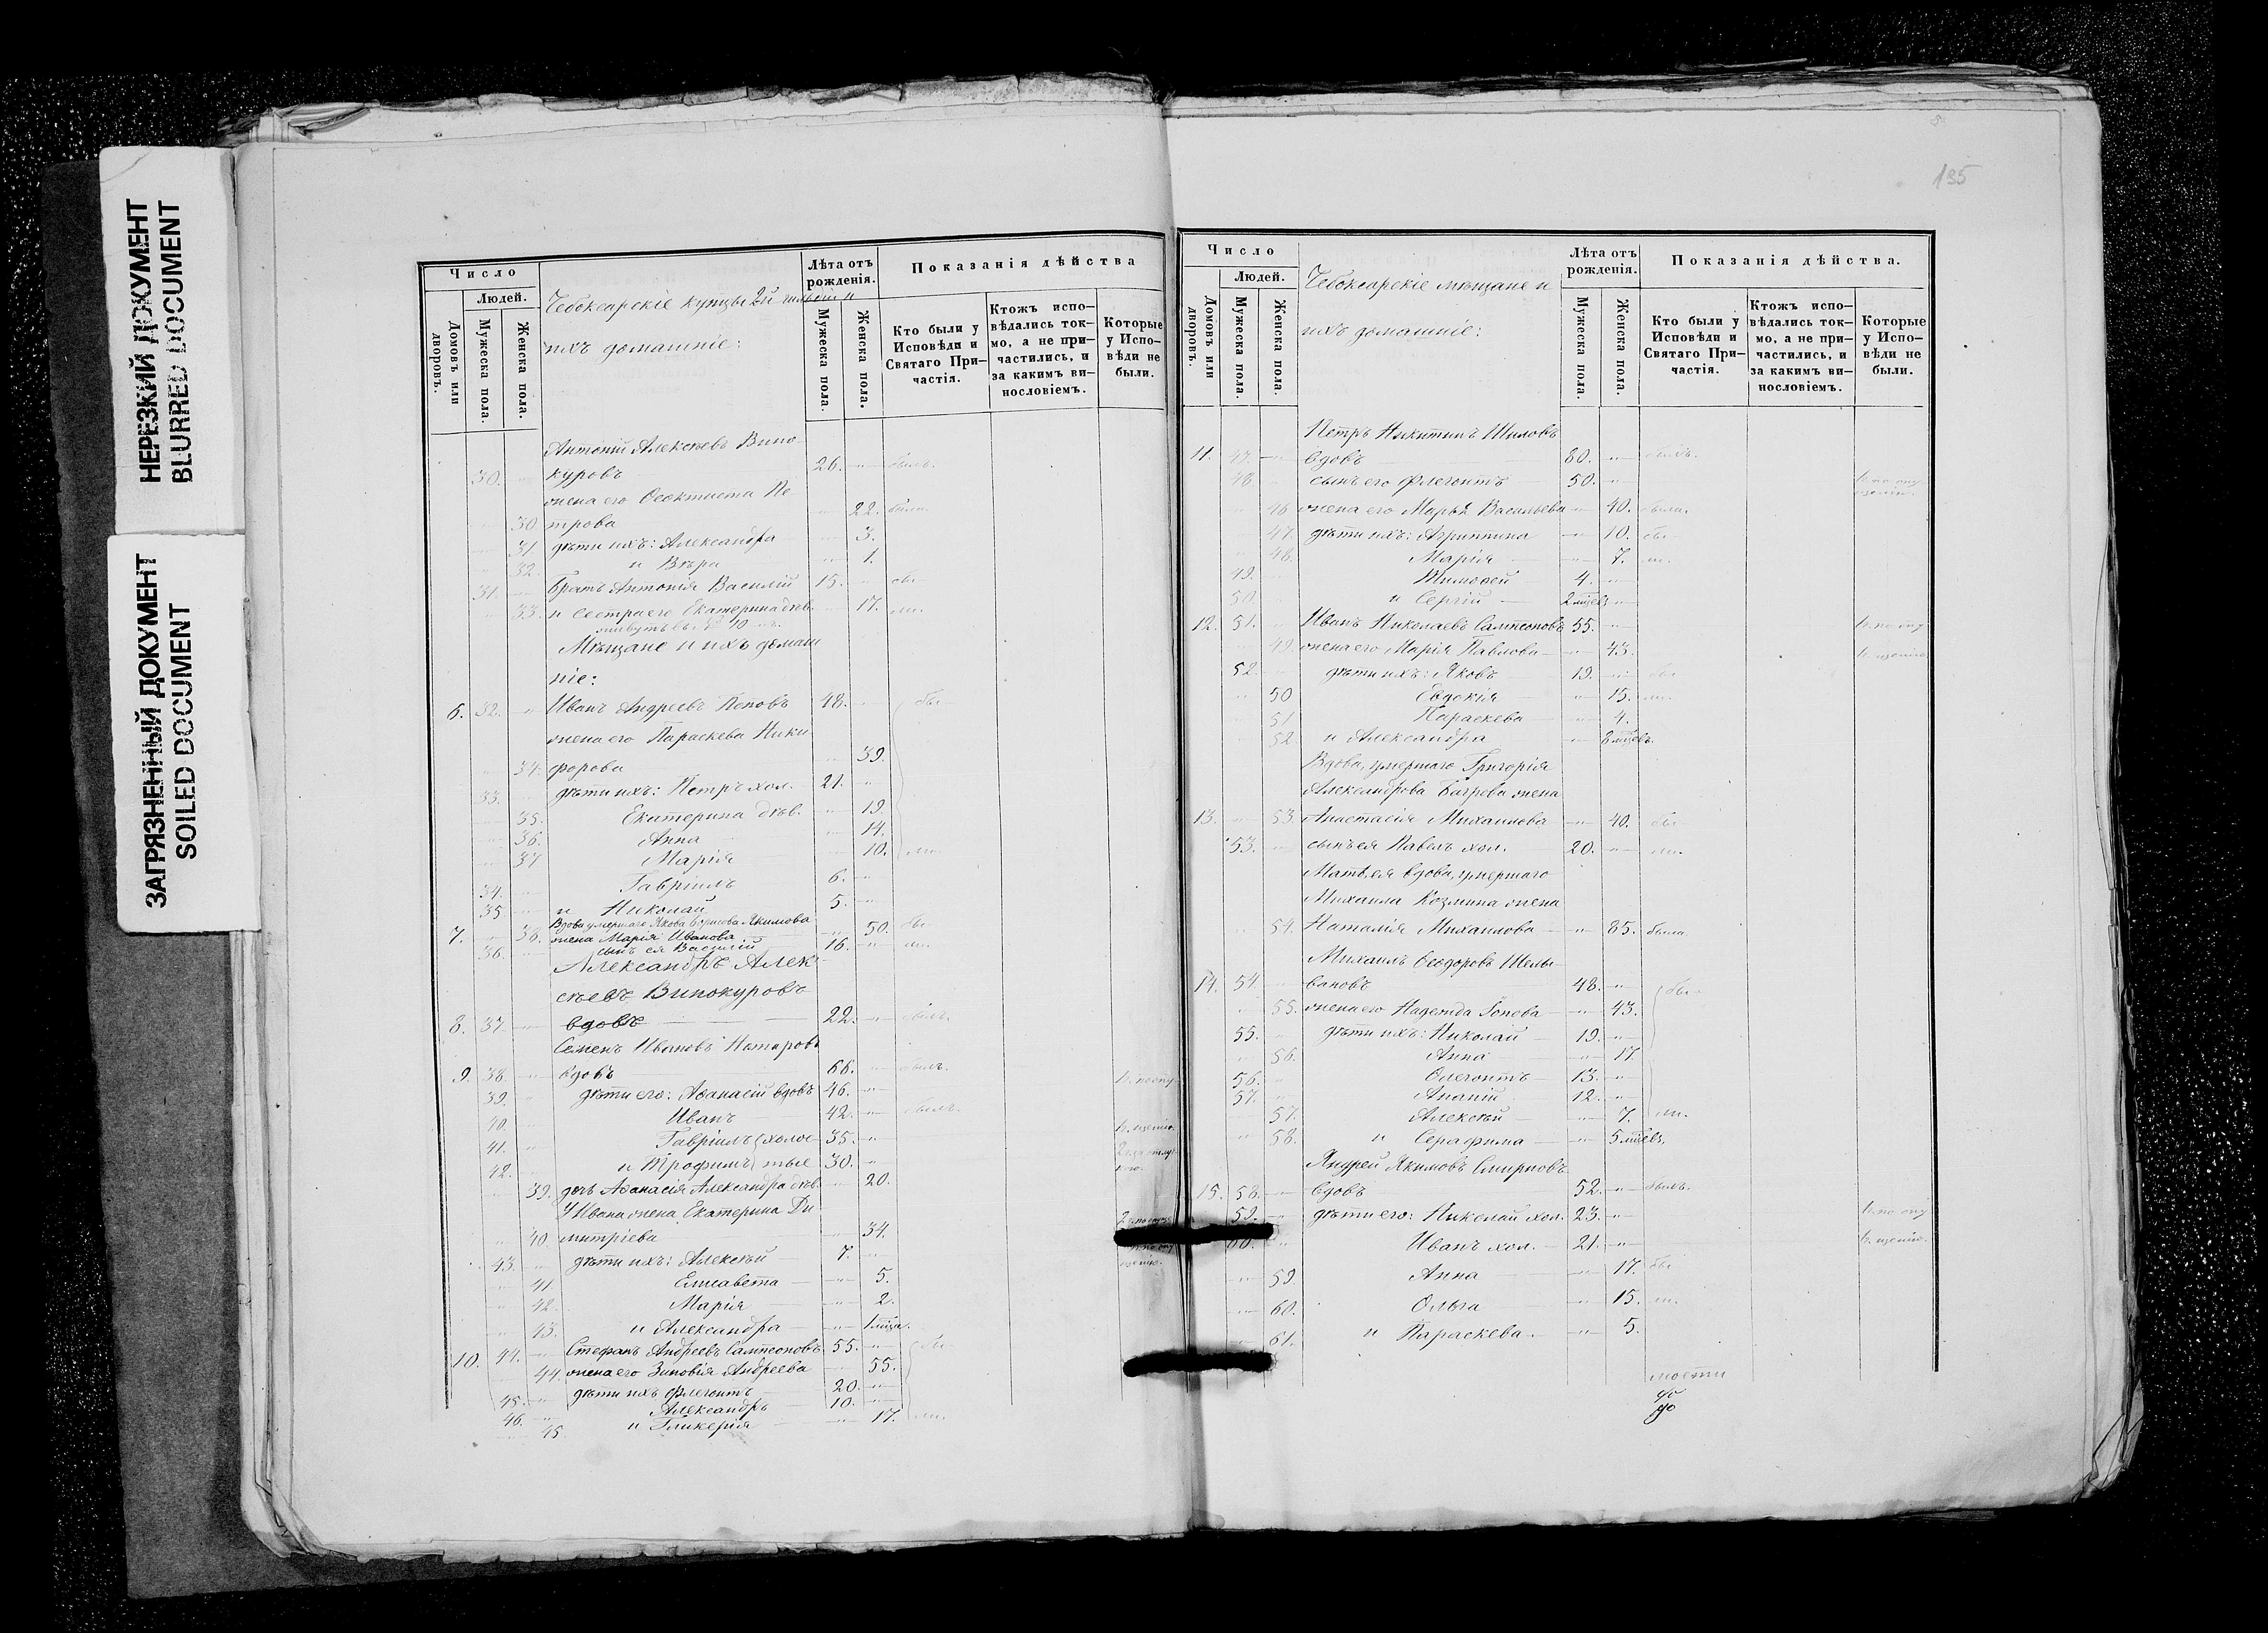 НЕРЕЗКИЙ ДОКУМЕНТ
BLURRED DOCUMENT
ЗАГРЯЗНЕННЫЙ ДОКУМЕНТ
SOILED DOCUMENT
Число
Людей.
Домовъ или дворовъ.
Мужеска пола.
Женска пола.
Чебоксарскіе купцы 2й гильдіи и
ихъ домашніе:
Лѣта отъ рожденія.
Мужеска пола.
Женска пола.
Показанія дѣйства
Кто были у Исповѣди и Святаго При-частія.
Ктожъ испо-вѣдались ток-мо, а не при-частились, и за какимъ ви-нословіемъ.
Которые у Испо-вѣди не были.
Антоній Алексѣевъ Вино
30. " куровъ 26. " былъ.
жена его Ѳеоктиста Пе
" 30 трова " 22. была.
" 31 дѣти ихъ: Александра " 3.
" 32. и Вѣра " 1.
31. " братъ Антонія Василій 15. " бы
" 33. и сестра его Екатерина дѣв. " 17. ли.
живутъ въ № 10
Мѣщане и ихъ домаш
ніе:
6. 32. " Иванъ Андреевъ Поповъ 48. " бы
жена его Параскева Ники
" 34. форова " 39.
33. " дѣти ихъ: Петръ хол. 21. "
" 35. Екатерина дѣв. " 19
" 36. Анна " 14.
" 37 Марія " 10. ли.
34. " Гавріилъ 6. "
35. " и Николай 5. "
Вдова умершаго Якова Борисова Якимова
7. " 38. жена Марія Иванова " 50. бы
36. " сынъ ея Василій 16. " ли.
Александръ Алек
сѣевъ Винокуровъ
8. 37 " вдовъ 22. " былъ.
Семенъ Ивановъ Нотаровъ
9. 38. " вдовъ 66. " былъ.
39. " дѣти его: Аѳанасій вдовъ 46. " 1. по опу
40. " Иванъ 42. " былъ.
41. " Гавріилъ холос 35. " 1. щенію.
42. " и Трофимъ тые 30. " 2. за отлуч
кою.
" 39. дочь Аѳанасія Александра дѣв. " 20.
У Ивана жена Екатерина Ди
" 40. митріева " 34.
43. " дѣти ихъ: Алексѣй 7. "
" 41. Елисавета " 5.
" 42. Марія " 2.
" 43. и Александра " 1 мѣся.
10. 44. " Стефанъ Андреевъ Сампсоновъ 55. " бы
" 44. жена его Зиновія Андреева " 55.
45. " дѣти ихъ Флегонтъ 20. "
46. " Александръ 10. "
45. и Гликерія " 17. ли.
135
Число
Людей.
Домовъ или дворовъ.
Мужеска пола.
Женска пола.
Чебоксарскіе мѣщане и
ихъ домашніе:
Лѣта отъ рожденія.
Мужеска пола.
Женска пола.
Показанія дѣйства.
Кто были у Исповѣди и Святаго При-частія.
Ктожъ испо-вѣдались ток-мо, а не при-частились, и за какимъ ви-нословіемъ.
Которые у Испо-вѣди не были.
Петръ Никитинъ Шиловъ
11. 47. " вдовъ 80. " былъ.
48. " сынъ его Флегонтъ 50. " 1. по опу
щенію.
46 жена его Марья Васильева " 40. была.
47. дѣти ихъ: Агриппина " 10. бы
48. Марія " 7. ли.
49. " Тимоѳей 4. "
50. " и Сергій 2 мѣсев "
12. 51. " Иванъ Николаевъ Сампсоновъ 55. " 1. по опу
49. жена его Марія Павлова " 43. 1. щенію
52. " дѣти ихъ: Яковъ 19. " бы
" 50 Евдокія " 15. ли.
" 51 Параскева " 4.
" 52 и Александра " 8 мѣсевъ.
Вдова, умершаго Григорія
Александрова Багрева жена
13. " 53. Анастасія Михаилова " 40. бы
53. " сынъ ея Павелъ хол. 20. " ли.
Мать ея вдова, умершаго
Михаила Козмина жена
" 54. Наталія Михаилова " 85. была
Михаилъ Ѳеодоровъ Шелы
14. 54. " вановъ 48. " бы
" 55. жена его Надежда " 43.
55. " дѣти ихъ: Николай 19. "
" 56. Анна " 17
56. " Флегонтъ 13. "
57. " Ананій 12. "
" 57. Алексѣй " 7. ли.
" 58. и Серафима " 5 мѣсев.
Андрей Якимовъ Смирновъ
15. 58. " вдовъ 52. " былъ.
59. " дѣти его: Николай хол. 23. " 1. по опу
60. " Иванъ хол. 21. " 1. щенію.
" 59. Анна " 17. бы
" 60. Ольга " 15. ли.
" 61. и Параскева. " 5.